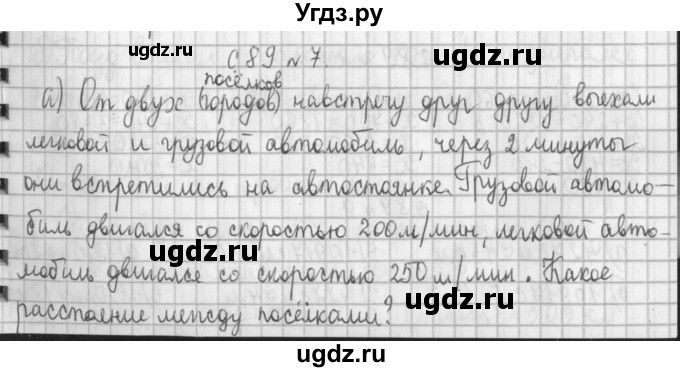 Угдз.ру
С 89 № 7.
посёлков
а) От двух (городов) навстречу друг другу выехали
легковой и грузовой автомобиль, через 2 минуты
они встретились на автостоянке. Грузовой автомо-
биль двигался со скоростью 200 м/мин, легковой авто-
мобиль двигался со скоростью 250 м/мин. Какое
расстояние между посёлками?
ugdz.ru
ugdz.ru
ugdz.ru
ugdz.ru
ugdz.ru
ugdz.ru
ugdz.ru
ugdz.ru
ugdz.ru